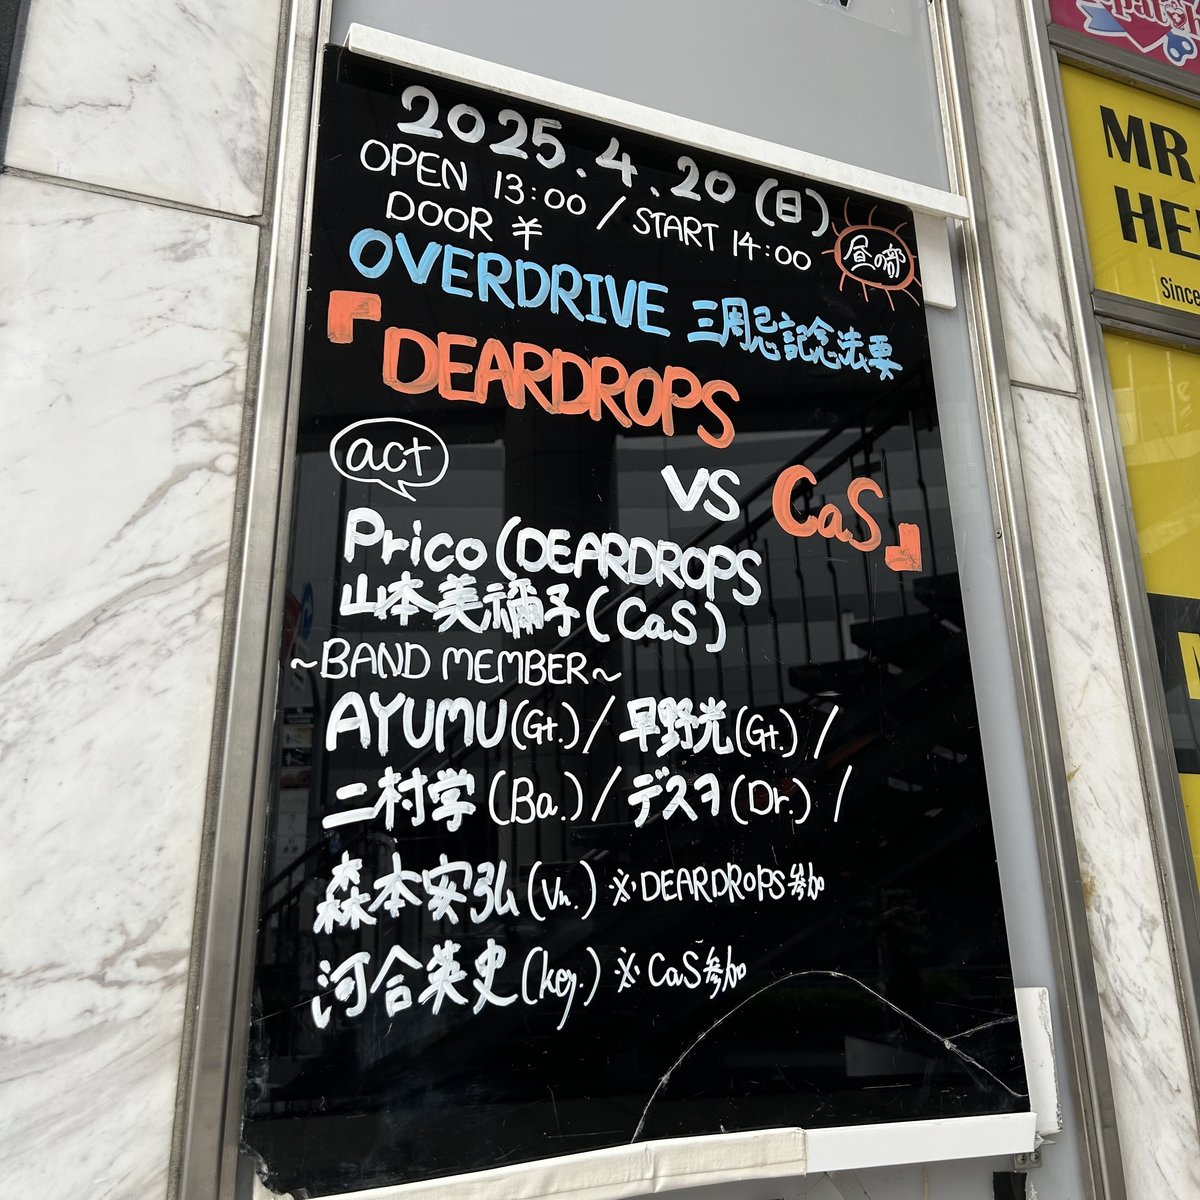 2025.4.20(日)
OPEN 13:00 / START 14:00
DOOR ¥
昼の部
OVERDRIVE 三周忌記念法要
『DEARDROPS
vs CaS』
act
Prico(DEARDROPS
山本美禰子(CaS)
~BAND MEMBER~
AYUMU(Gt.)/早野光(Gt.)/
二村学(Ba.)/デスヲ(Dr.)/
森本安弘(Vn.)※DEARDROPS参加
河合英史(key.)※CaS参加
MR.
HE
Since